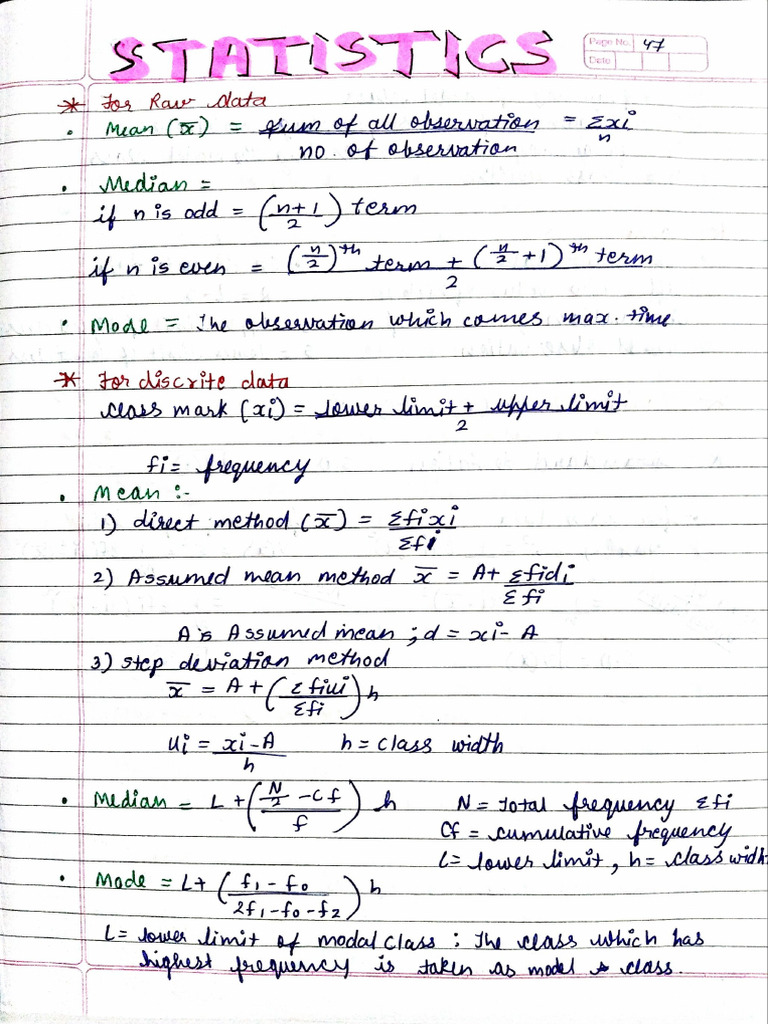 STATISTICS
Page No. 47
Date
* For Raw data
• Mean (x̄) = sum of all observation / no. of observation = Σxi / n
• Median =
if n is odd = ((n+1)/2) term
if n is even = ((n/2)th term + (n/2 + 1)th term) / 2
• Mode = The observation which comes max. time
* For discrite data
class mark (xi) = lower limit + upper limit / 2
fi = frequency
• Mean :-
1) direct method (x̄) = Σfixi / Σfi
2) Assumed mean method x̄ = A + Σfidi / Σfi
A is Assumed mean ; d = xi - A
3) step deviation method
x̄ = A + (Σfiui / Σfi) h
ui = xi - A / h h = class width
• Median = L + ((N/2 - Cf) / f) h N = Total frequency Σfi
Cf = cumulative frequency
L = lower limit, h = class width
• Mode = L + ((f₁ - f₀) / (2f₁ - f₀ - f₂)) h
L = lower limit of modal class : The class which has
highest frequency is taken as model class.